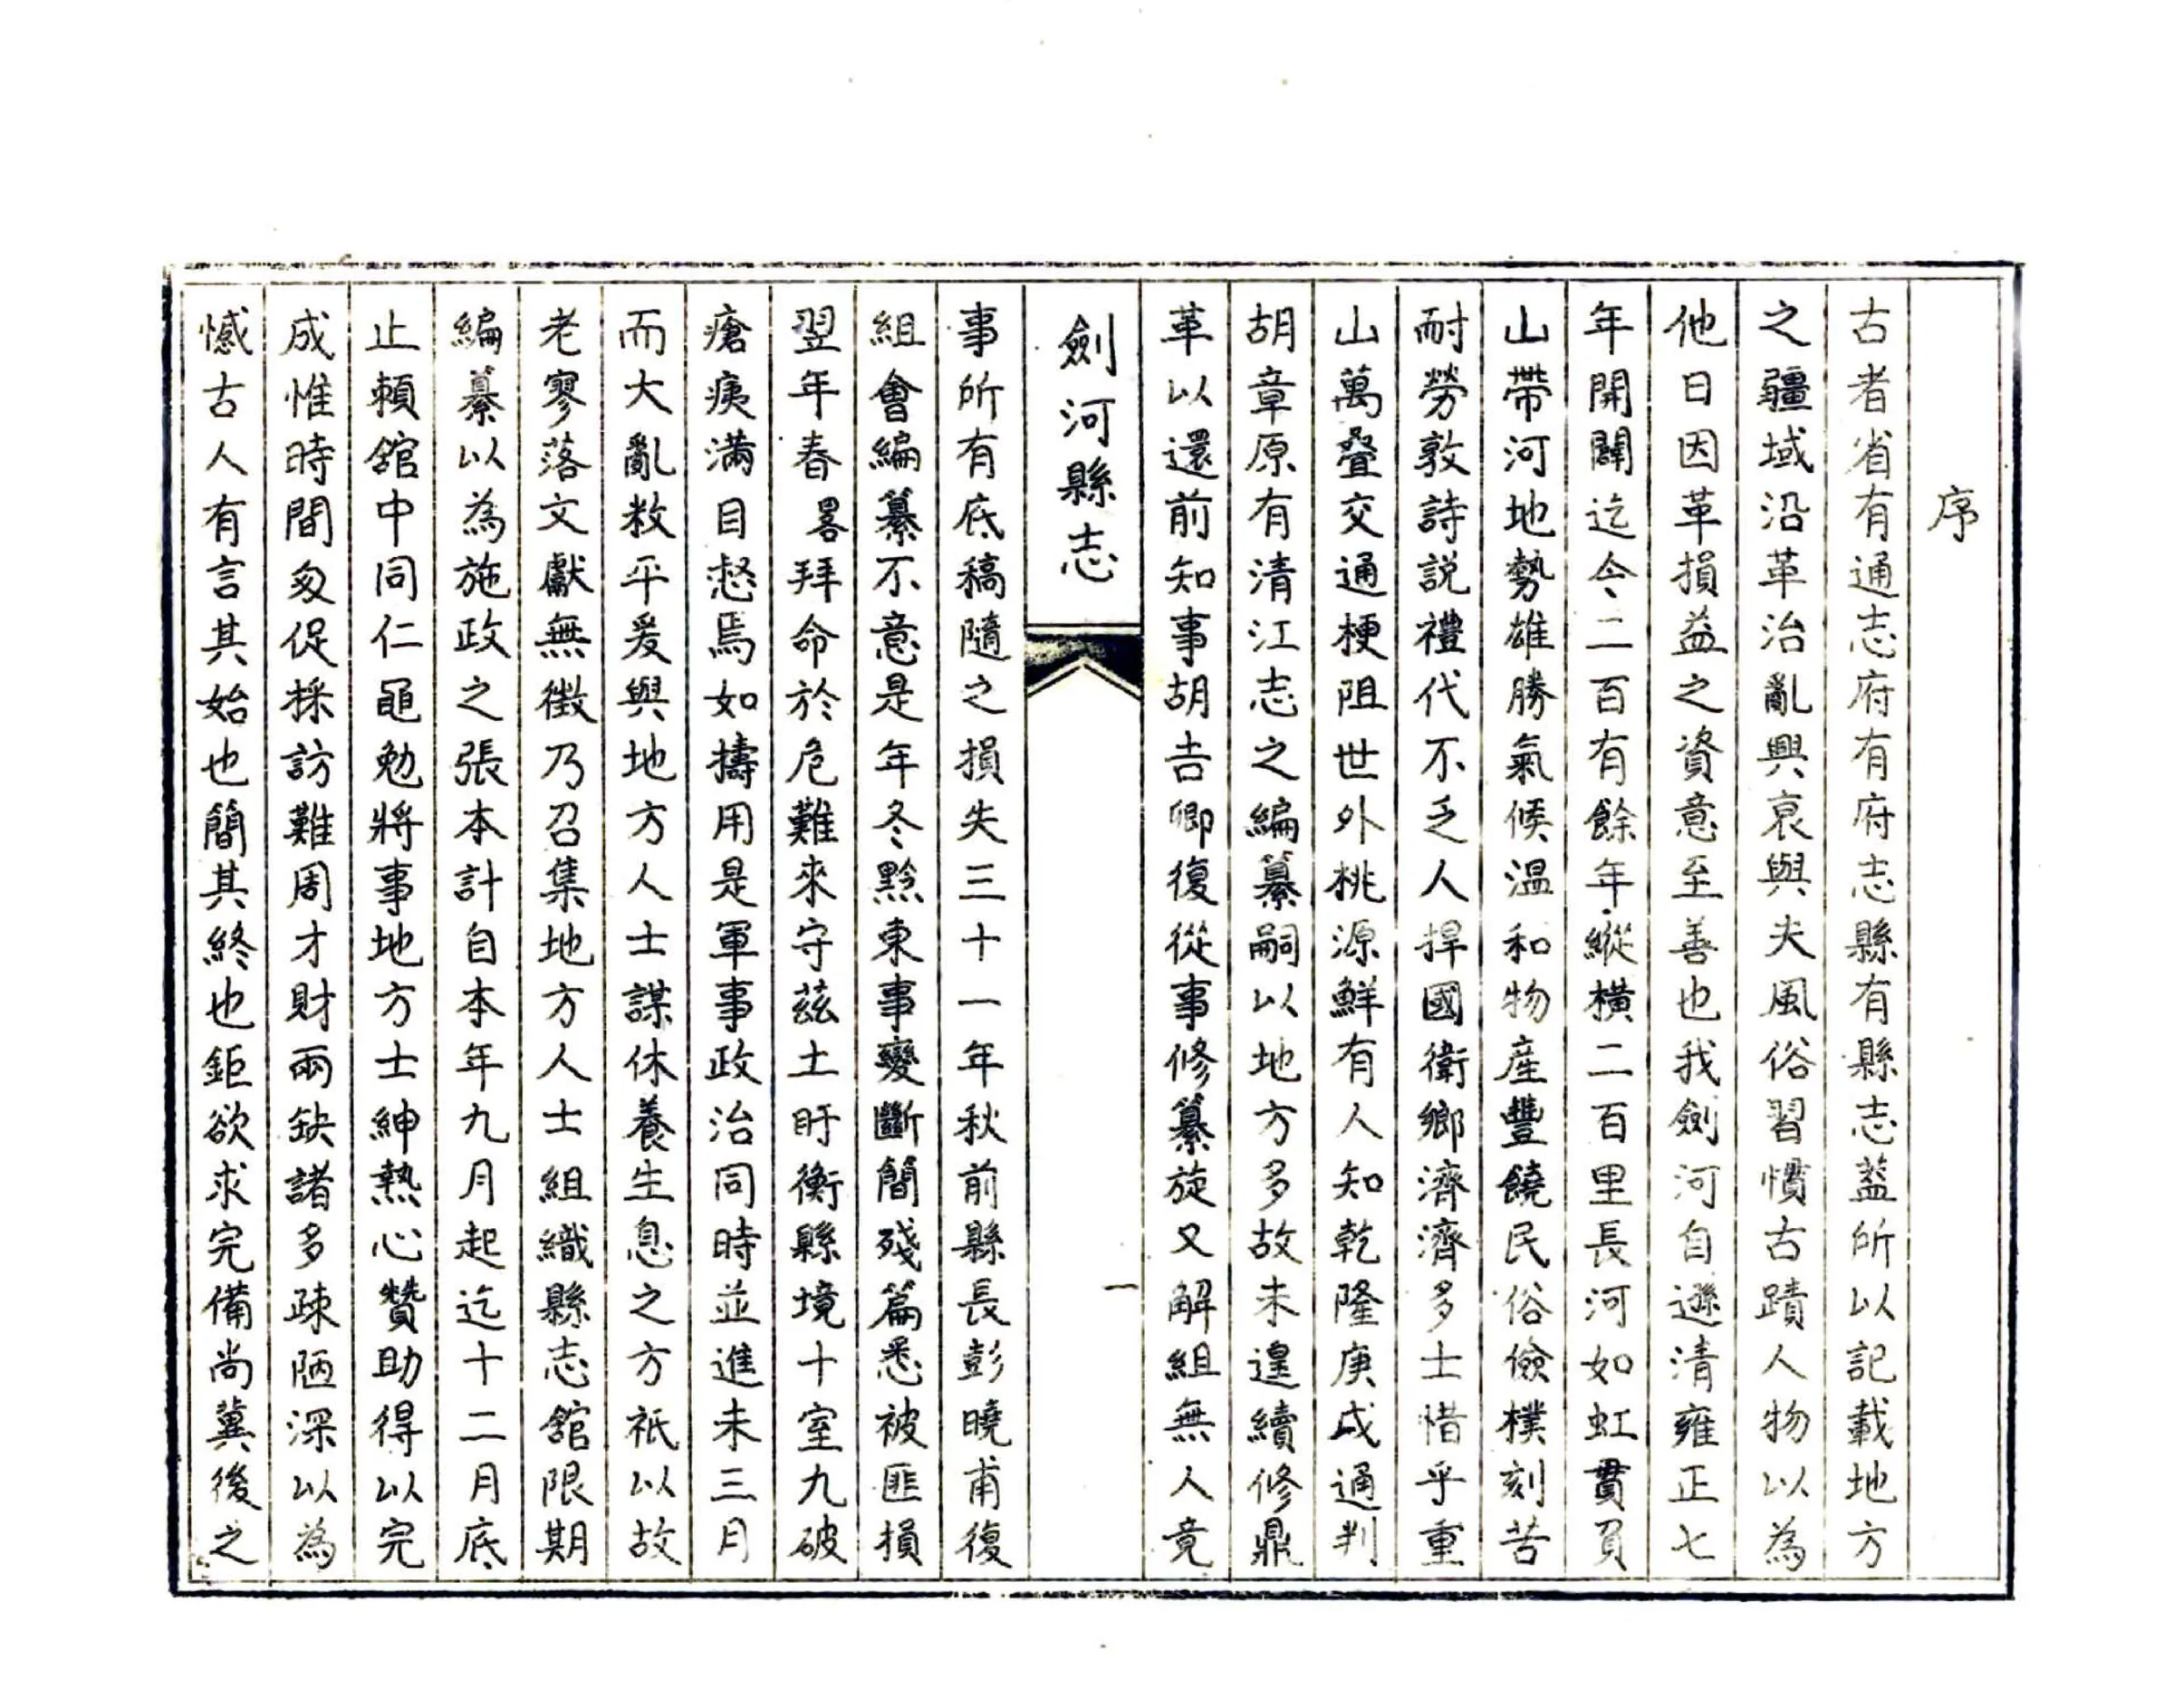 序
古者省有通志府有府志縣有縣志葢所以記載地方
之疆域沿革治亂興衰與夫風俗習慣古蹟人物以為
他日因革損益之資意至善也我劍河自遜清雍正七
年開闢迄今二百有餘年縱橫二百里長河如虹貫負
山帶河地勢雄勝氣候溫和物産豐饒民俗儉樸刻苦
耐勞敦詩説禮代不乏人捍國衛鄉濟濟多士惜乎重
山萬疊交通梗阻世外桃源鮮有人知乾隆庚戌通判
胡章原有清江志之編纂嗣以地方多故未遑續修鼎
革以還前知事胡吉卿復從事修纂旋又解組無人竟
劍河縣志
一
事所有底稿隨之損失三十一年秋前縣長彭曉甫復
組會編纂不意是年冬黔東事變斷簡殘篇悉被匪損
翌年春畧拜命於危難來守茲土盱衡縣境十室九破
瘡痍滿目惄焉如擣用是軍事政治同時並進未三月
而大亂敉平爰與地方人士謀休養生息之方祇以故
老寥落文獻無徵乃召集地方人士組織縣志舘限期
編纂以為施政之張本計自本年九月起迄十二月底
止賴舘中同仁黽勉將事地方士紳熱心贊助得以完
成惟時間匆促採訪難周才財兩缺諸多疎陋深以為
憾古人有言其始也簡其終也鉅欲求完備尚冀後之